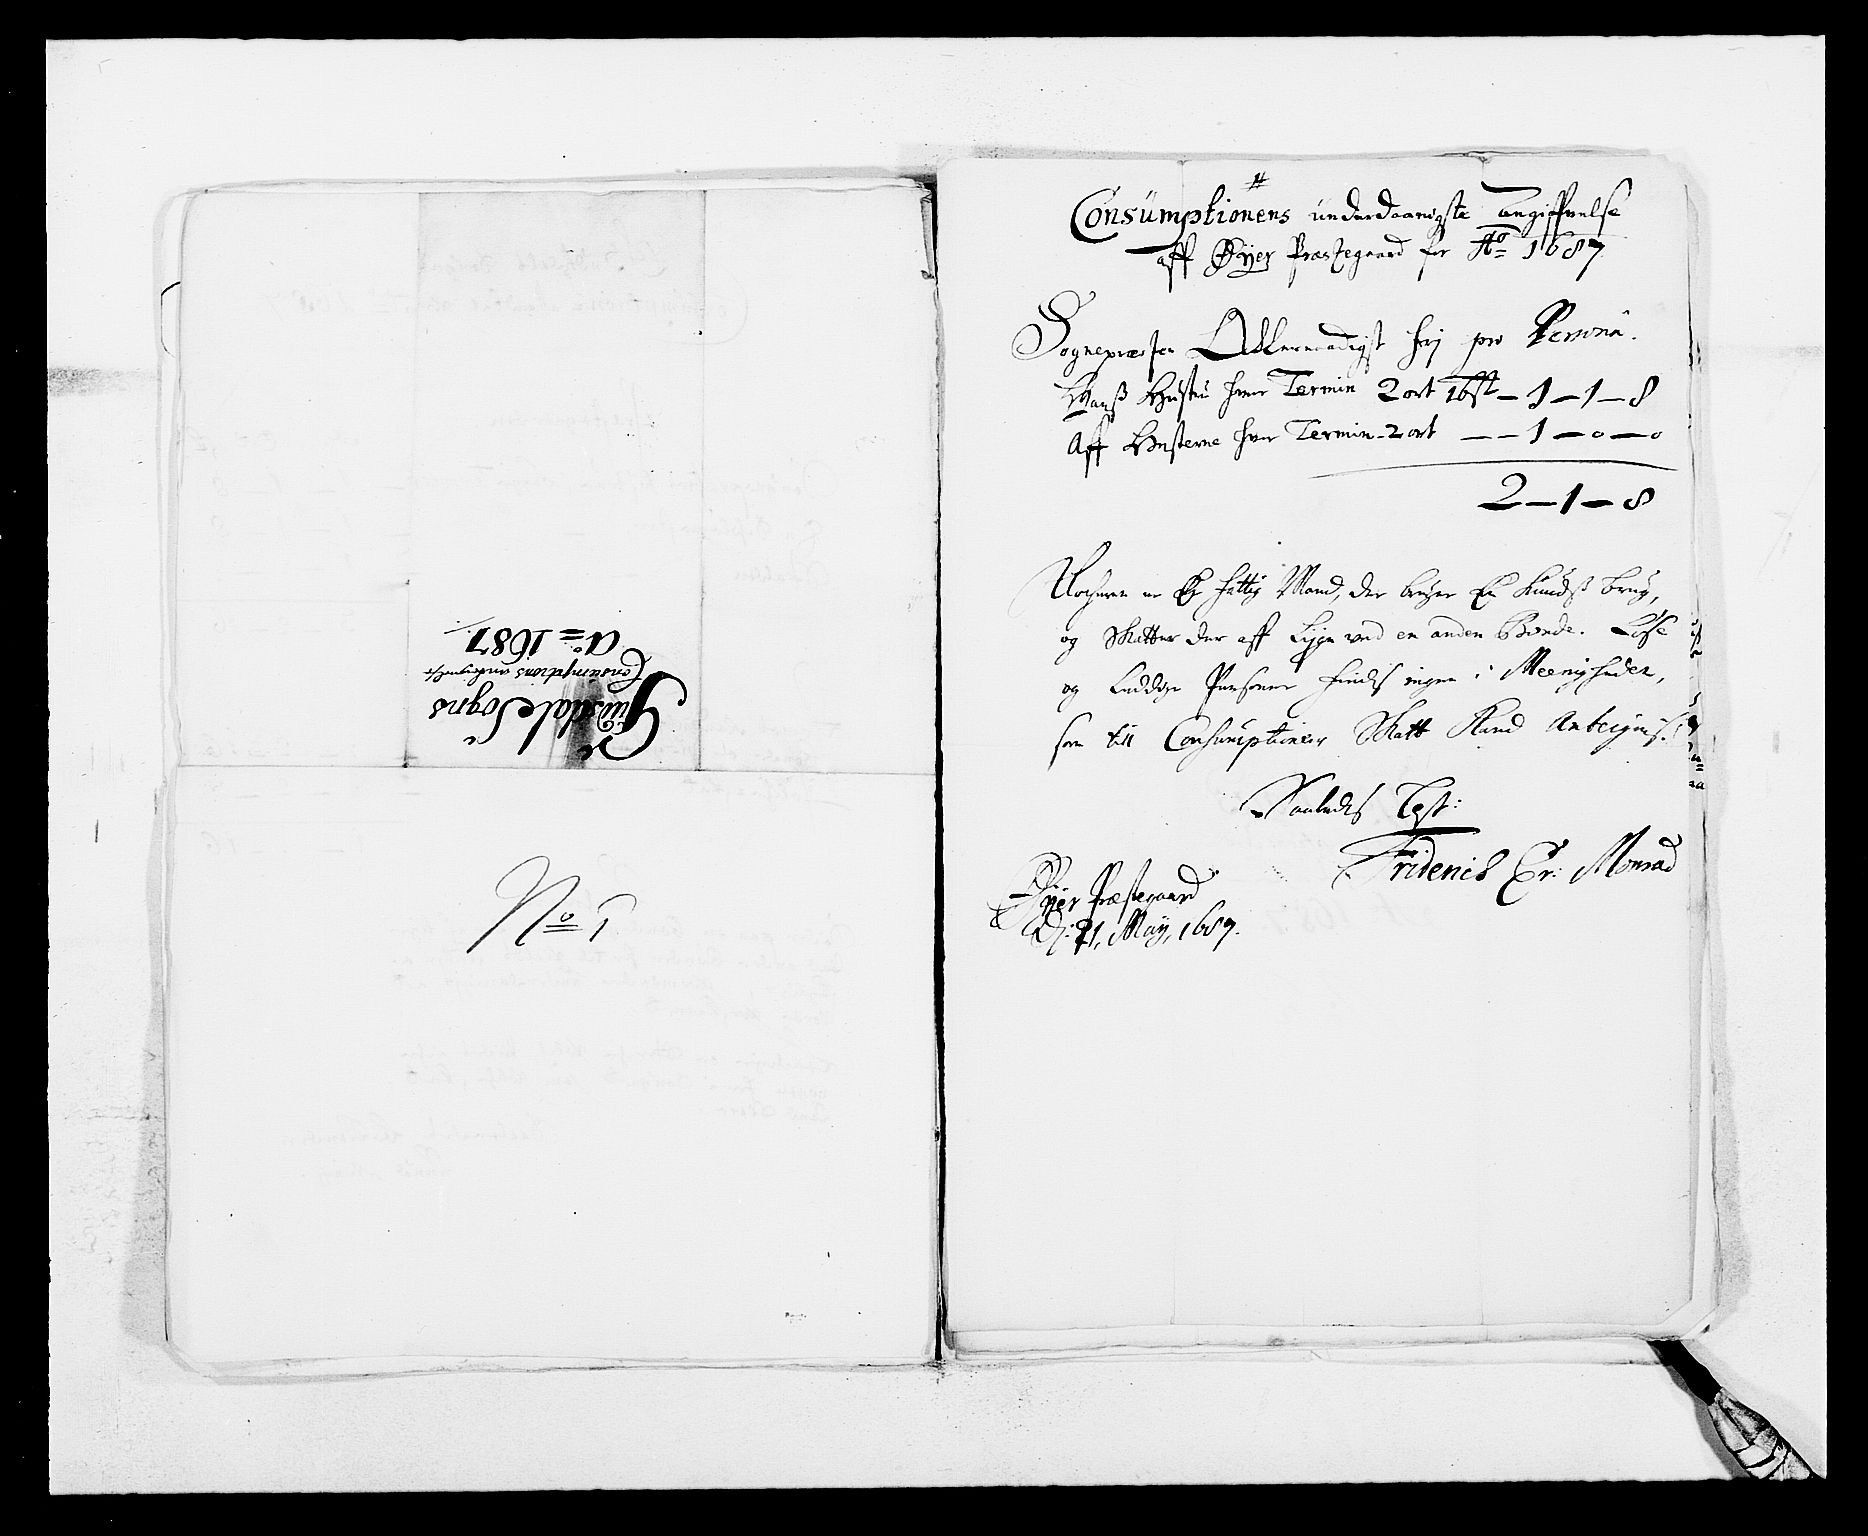 Gusdals Sogns
Consumptions
a.o 1687
No 1
Consumptionens underdaanigste angiffvelse
aff Øyer Præstegaard for Ao 1687
Sognepræsten Allernaadigst frij pro Persona.
Hanß Hustru hver Termin 2 ort 16 sk – 1 – 1 – 8
Aff hver Termin – 2 ort – – 1 – 0 – 0
2 – 1 – 8
er En fattig Mand, der bruger En brug,
og Skatter der aff Lige ved en anden Bonde. Løse
og Leddige Personer findes ingen i Meenigheden,
som till Consumptioner Skatt Kand Antegnis.
Saaledes Test:
Friderich Chr: Monrad
Øyer Præstegaard
D: 21. Maij, 1687.